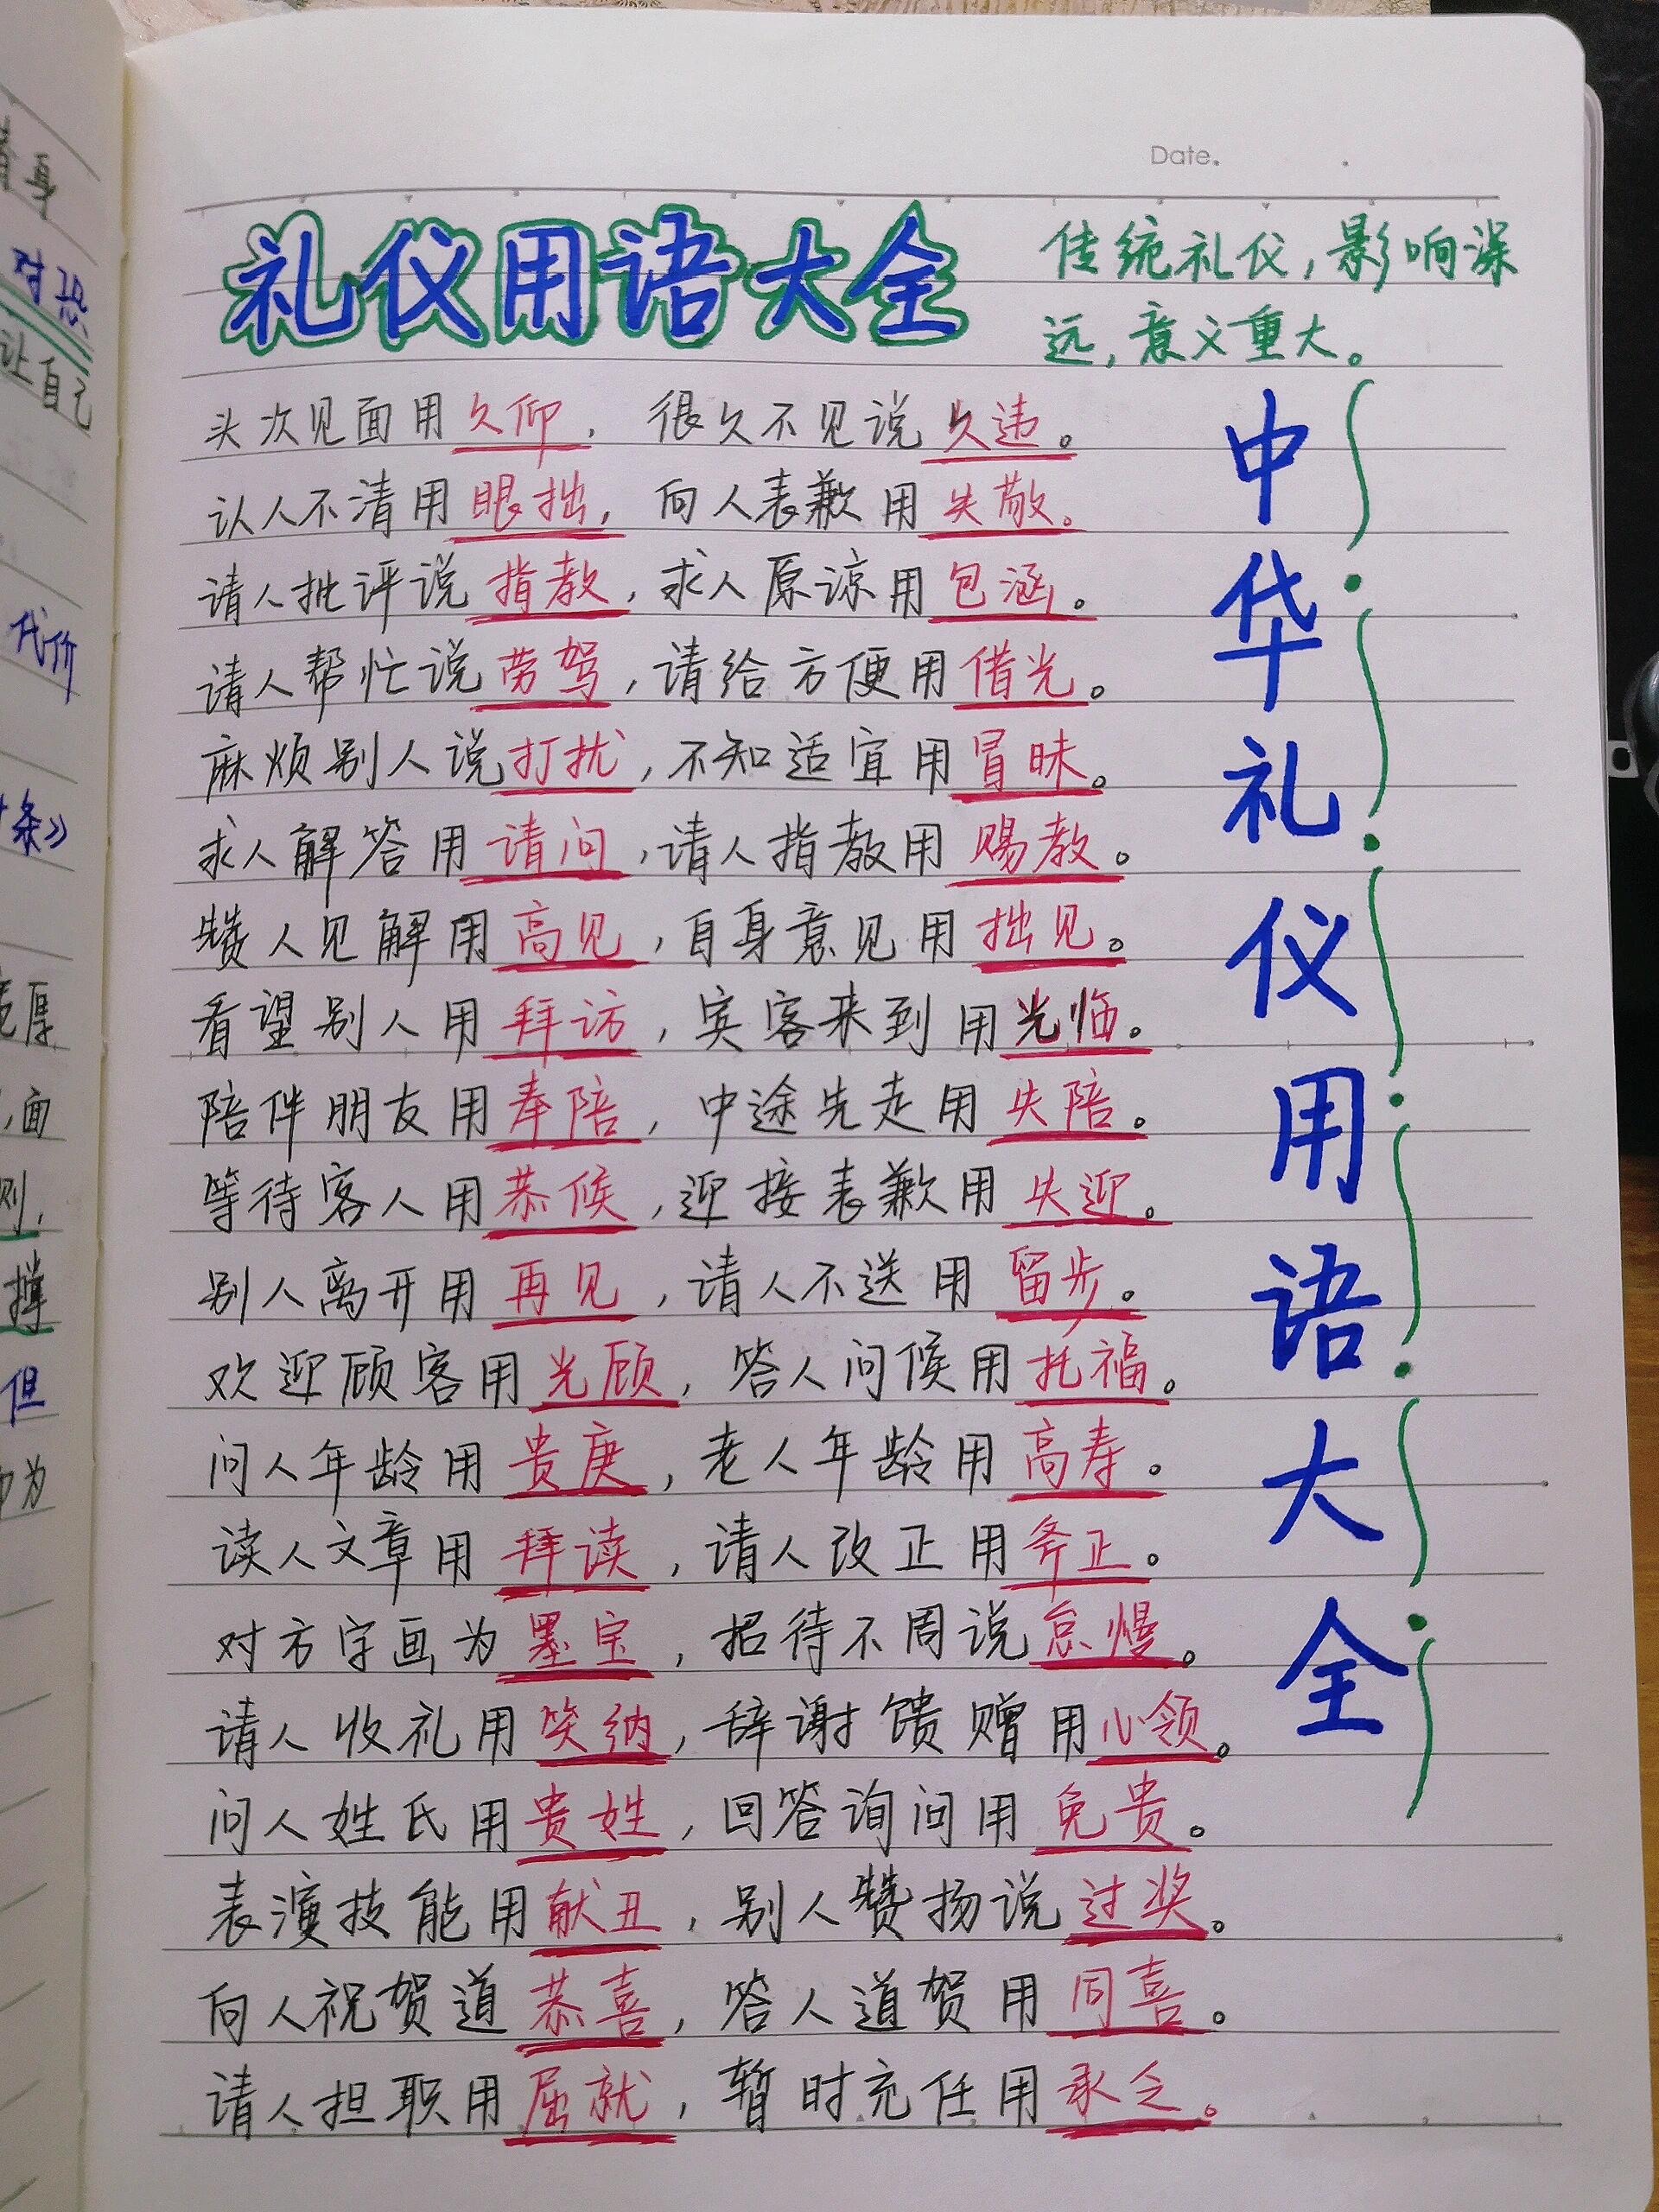 Date.
礼仪用语大全
传统礼仪,影响深
远,意义重大。
头次见面用久仰,很久不见说久违。
认人不清用眼拙,向人表歉用失敬。
请人批评说指教,求人原谅用包涵。
请人帮忙说劳驾,请给方便用借光。
麻烦别人说打扰,不知适宜用冒昧。
求人解答用请问,请人指教用赐教。
赞人见解用高见,自身意见用拙见。
看望别人用拜访,宾客来到用光临。
陪伴朋友用奉陪,中途先走用失陪。
等待客人用恭候,迎接表歉用失迎。
别人离开用再见,请人不送用留步。
欢迎顾客用光顾,答人问候用托福。
问人年龄用贵庚,老人年龄用高寿。
读人文章用拜读,请人改正用斧正。
对方字画为墨宝,招待不周说怠慢。
请人收礼用笑纳,辞谢馈赠用心领。
问人姓氏用贵姓,回答询问用免贵。
表演技能用献丑,别人赞扬说过奖。
向人祝贺道恭喜,答人道贺用同喜。
请人担职用屈就,暂时充任用承乏。
中华礼仪用语大全
让自己
代价
条》
厚
面
则,
撑
但
为